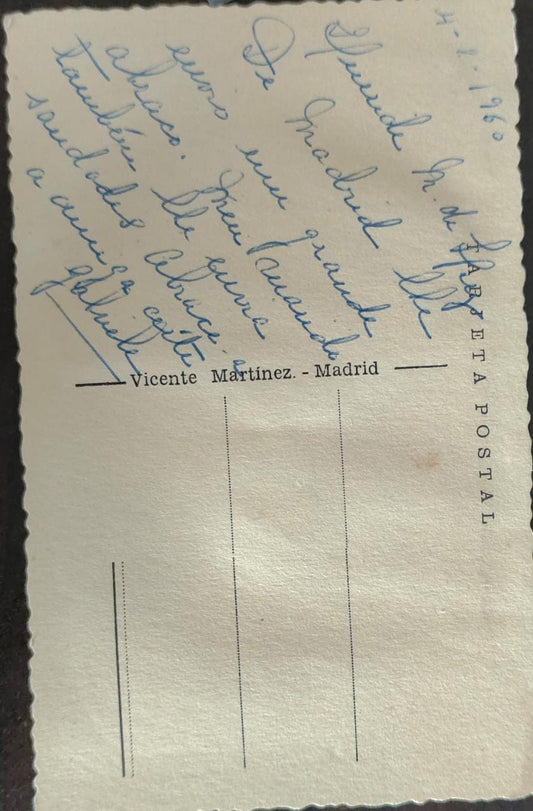 1960
Querida M. de
De Madrid lhe
envio um grande
abraço. Meu marido
também lhe envia
saudades. Abrace-a
a amiga certa
TARJETA POSTAL
Vicente Martínez. - Madrid